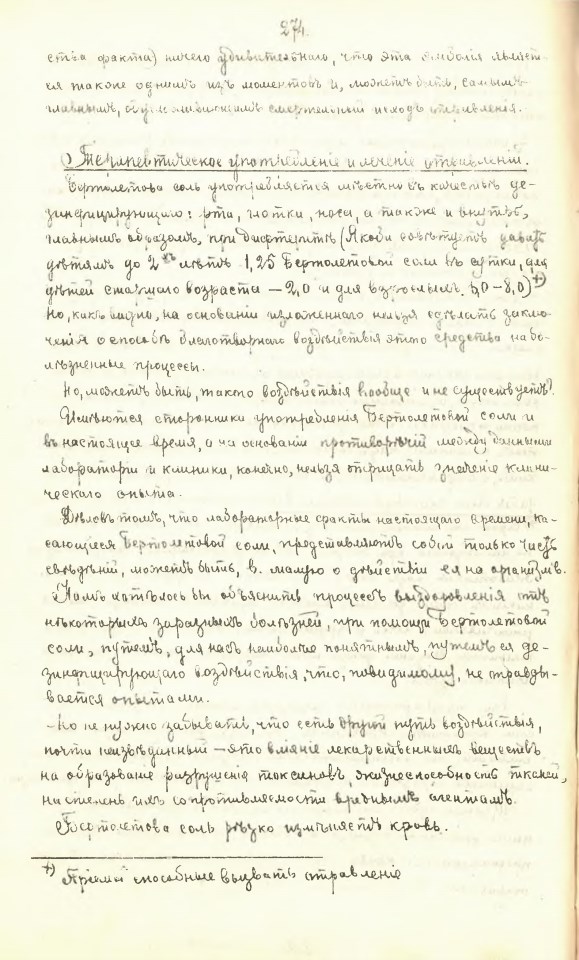 274.
ства факта) ничего удивительнаго, что эта эмболія являет-
ся также однимъ изъ моментовъ и, можетъ быть, самымъ
главнымъ, обусловливающимъ смертельный исходъ отравленія.
Терапевтическое употребленіе и леченіе отравленій.
Бертолетова соль употребляется мѣстно въ качествѣ де-
зинфицирующаго: рта, глотки, носа, а также и внутрь,
главнымъ образомъ, при дифтеритѣ (Якоби совѣтуетъ давать
дѣтямъ до 2хъ лѣтъ 1,25 Бертолетовой соли въ сутки, для
дѣтей старшаго возраста – 2,0 и для взрослыхъ – 8,0) +)
Но, какъ видно, на основаніи изложеннаго нельзя сдѣлать заклю-
ченія о способѣ благотворнаго воздѣйствія этого средства на бо-
лѣзненные процессы.
Но, можетъ быть, такого воздѣйствія вообще и не существуетъ?
Имѣются сторонники употребленія Бертолетовой соли и
въ настоящее время, а на основаніи противорѣчій между данными
лабораторіи и клиники, конечно, нельзя отрицать значеніе клини-
ческаго опыта.
Дѣло въ томъ, что лабораторные факты настоящаго времени, ка-
сающіеся Бертолетовой соли, представляютъ собой только часть
свѣдѣній, можетъ быть, в. малую о дѣйствіи ея на организмъ.
Намъ хотѣлось бы объяснить процессъ выздоровленія отъ
нѣкоторыхъ заразныхъ болѣзней, при помощи Бертолетовой
соли, путемъ, для насъ наиболѣе понятнымъ, путемъ ея де-
зинфицирующаго воздѣйствія, что, повидимому, не оправды-
вается опытами.
– Но не нужно забывать, что есть другой путь воздѣйствія,
почти неизвѣданный – это вліяніе лекарственныхъ веществъ
на образованіе разрушенія токсиновъ, жизнеспособность тканей,
на степень ихъ сопротивляемости вреднымъ агентамъ.
Бертолетова соль рѣзко измѣняетъ кровь.
+) Пріемы способные вызвать отравленіе